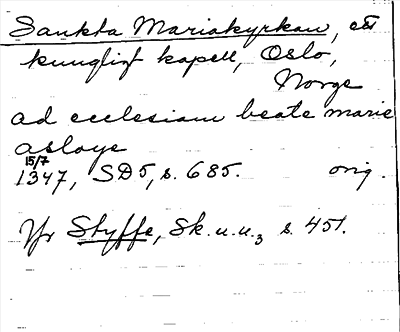 Sankta Mariakyrkan, ett
kungligt kapell, Oslo,
Norge
ad ecclesiam beate marie
asloye
15/7
1347, SD5, s. 685. orig.
Jfr Styffe, Sk.u.u.3 s. 451.